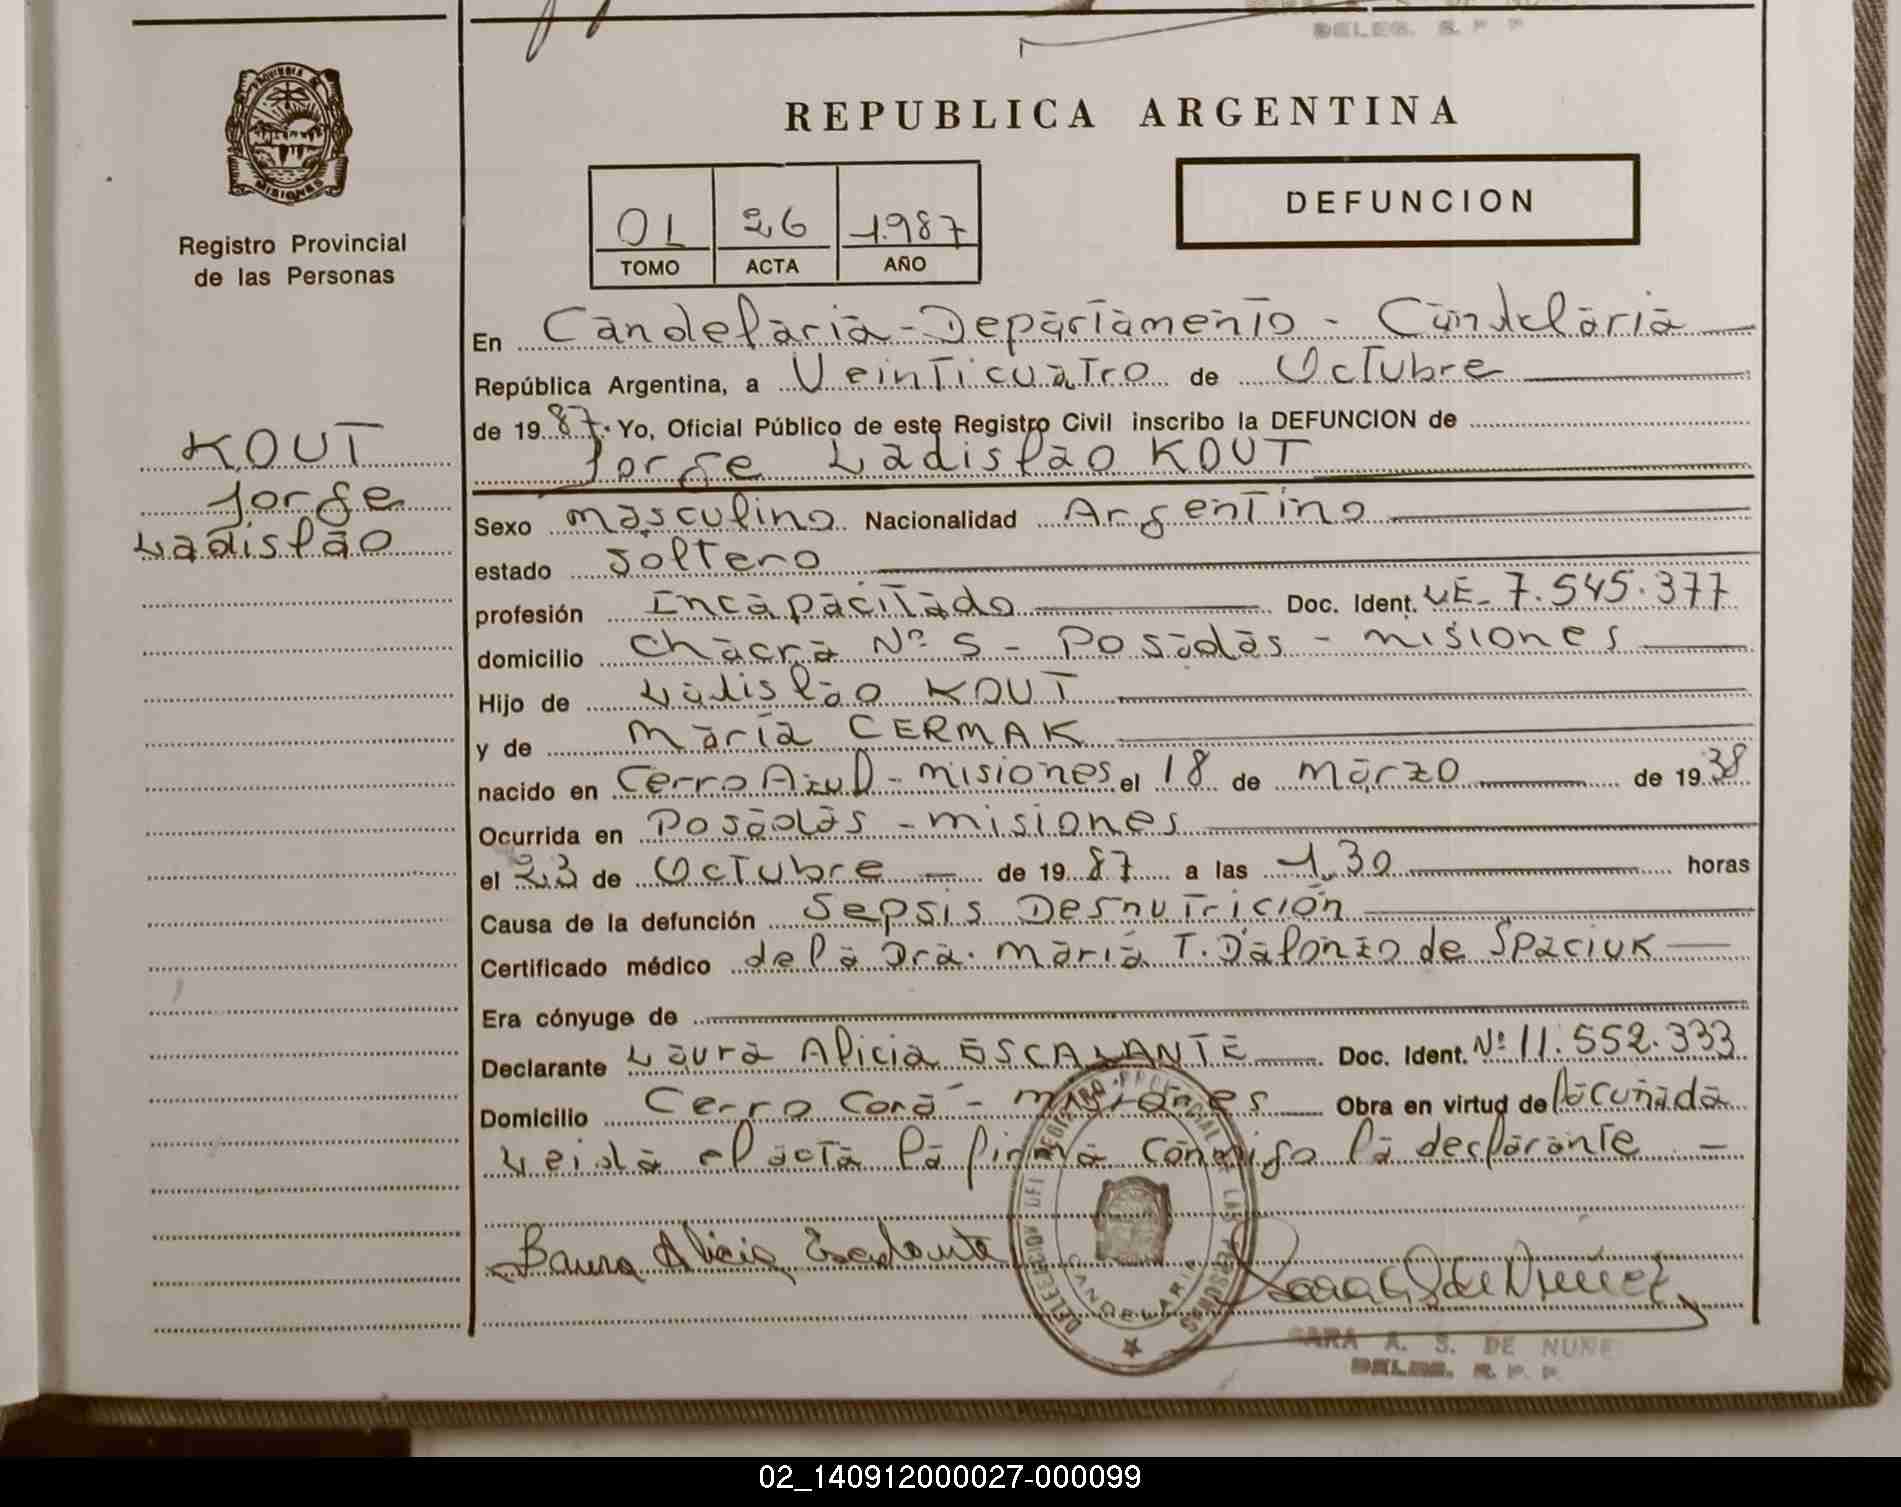 DELEG. R. P. P.
MISIONES
Registro Provincial
de las Personas
KOUT
Jorge
Ladislao
REPUBLICA ARGENTINA
01 26 1.987
TOMO ACTA AÑO
DEFUNCION
En Candelaria - Departamento - Candelaria
República Argentina, a Veinticuatro de Octubre
de 1987. Yo, Oficial Público de este Registro Civil inscribo la DEFUNCION de
Jorge Ladislao KOUT
Sexo masculino Nacionalidad Argentino
estado Soltero
profesión Incapacitado Doc. Ident. LE- 7.545.377
domicilio Chacra Nº 5 - Posadas - misiones
Hijo de Ladislao KOUT
y de María CERMAK
nacido en Cerro Azul - misiones el 18 de marzo de 1938
Ocurrida en Posadas - misiones
el 23 de Octubre de 1987 a las 1,30 horas
Causa de la defunción Sepsis Desnutrición
Certificado médico de la Dra. María T. Dalonzo de Spaciuk
Era cónyuge de
Declarante Laura Alicia ESCALANTE Doc. Ident. Nº 11.552.333
Domicilio Cerro Corá - misiones Obra en virtud de la cuñada
Leida el acta la firma conmigo la declarante -
Laura Alicia Escalante
DELEGACION DEL REGISTRO PROVINCIAL DE LAS PERSONAS
CANDELARIA
SARA A. S. DE NUÑE
DELEG. R. P. P.
02_140912000027-000099